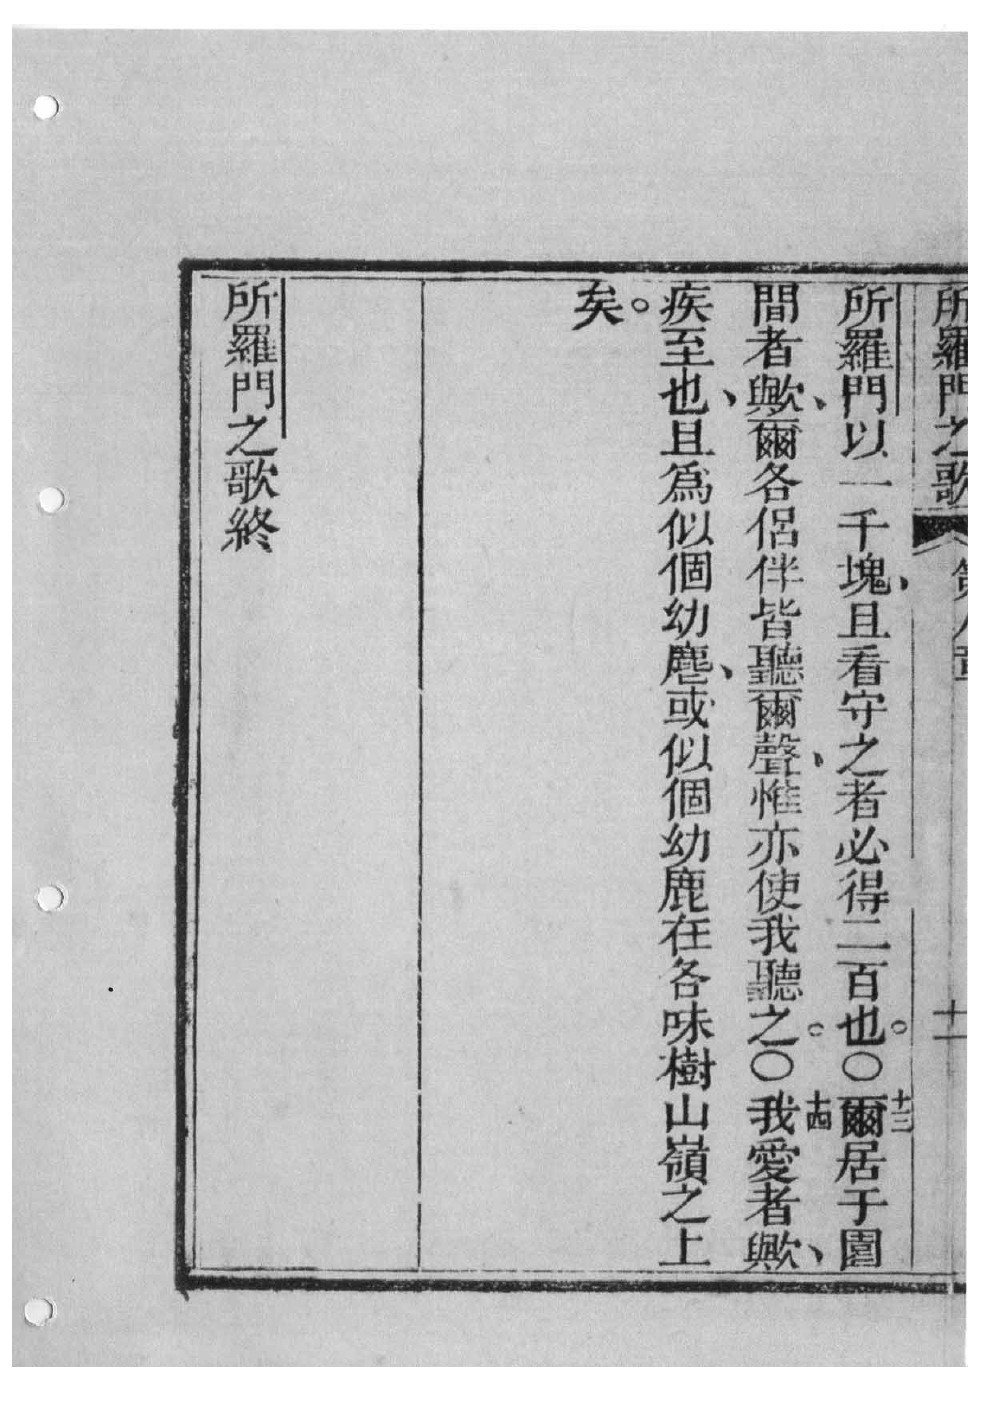 所羅門之歌 第八章 十一
所羅門以一千塊、且看守之者必得二百也。○十三爾居于園
間者歟、爾各侶伴皆聽爾聲、惟亦使我聽之。○十四我愛者歟、
疾至也、且為似個幼麀、或似個幼鹿在各味樹山嶺之上
矣。
所羅門之歌終